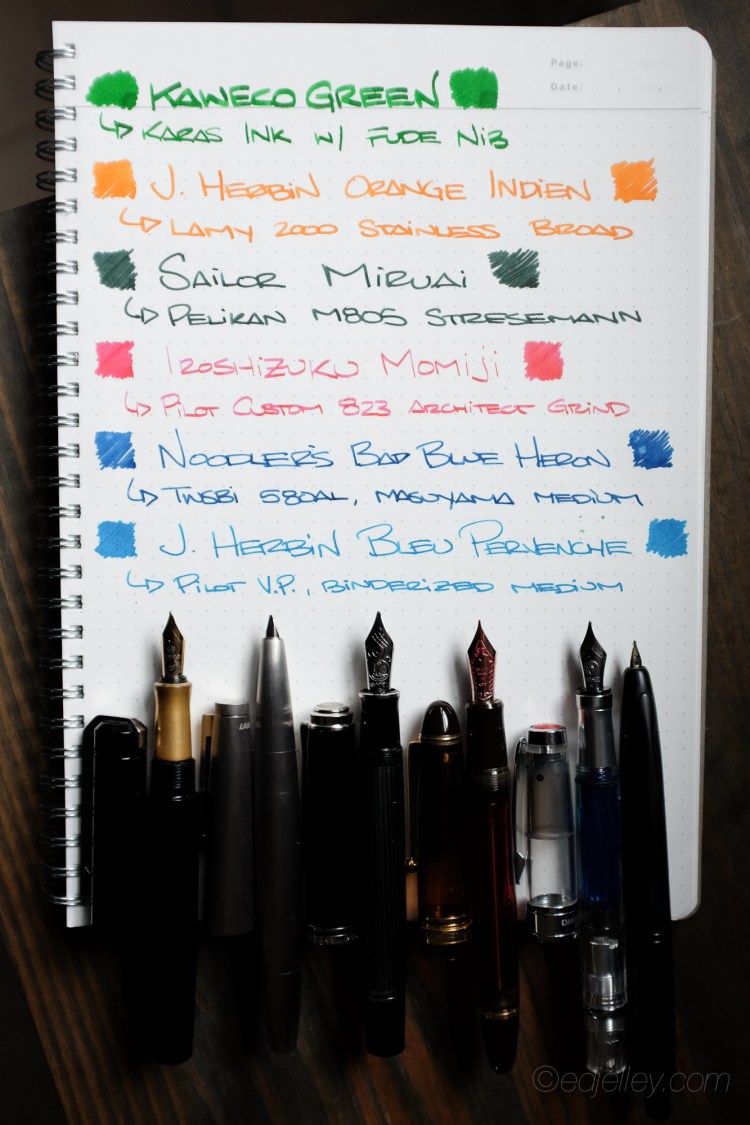 Page:
Date:
KAWECO GREEN
↳ KARAS INK W/ FUDE NIB
J. HERBIN ORANGE INDIEN
↳ LAMY 2000 STAINLESS BROAD
SAILOR MIRUAI
↳ PELIKAN M805 STRESEMANN
IROSHIZUKU MOMIJI
↳ PILOT CUSTOM 823 ARCHITECT GRIND
NOODLER'S BAD BLUE HERON
↳ TWSBI 580AL, MASUYAMA MEDIUM
J. HERBIN BLEU PERVENCHE
↳ PILOT V.P., BINDERIZED MEDIUM
©edjelley.com